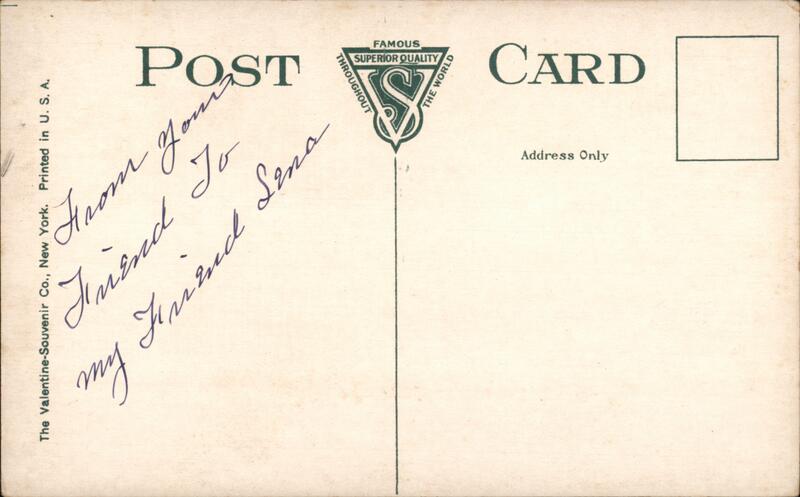 POST CARD
FAMOUS
SUPERIOR QUALITY
THROUGHOUT
THE WORLD
VS
Address Only
From Your
Friend To
my Friend Lena
The Valentine-Souvenir Co., New York. Printed in U. S. A.